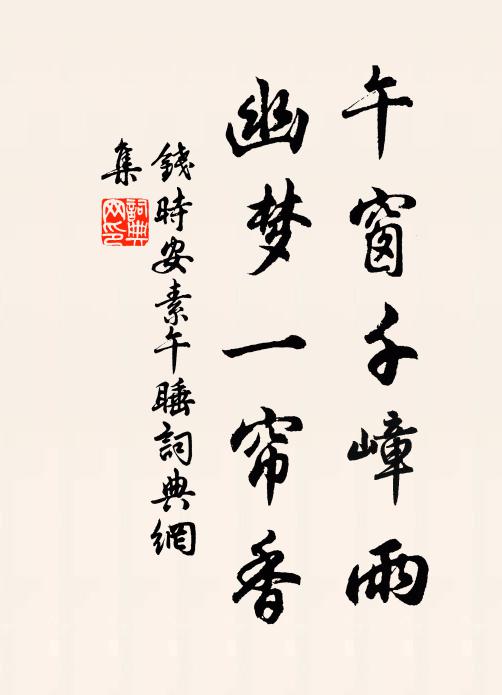 午窗千嶂雨
幽梦一帘香
錢時安素午睡詞典網
集
詞典
网印